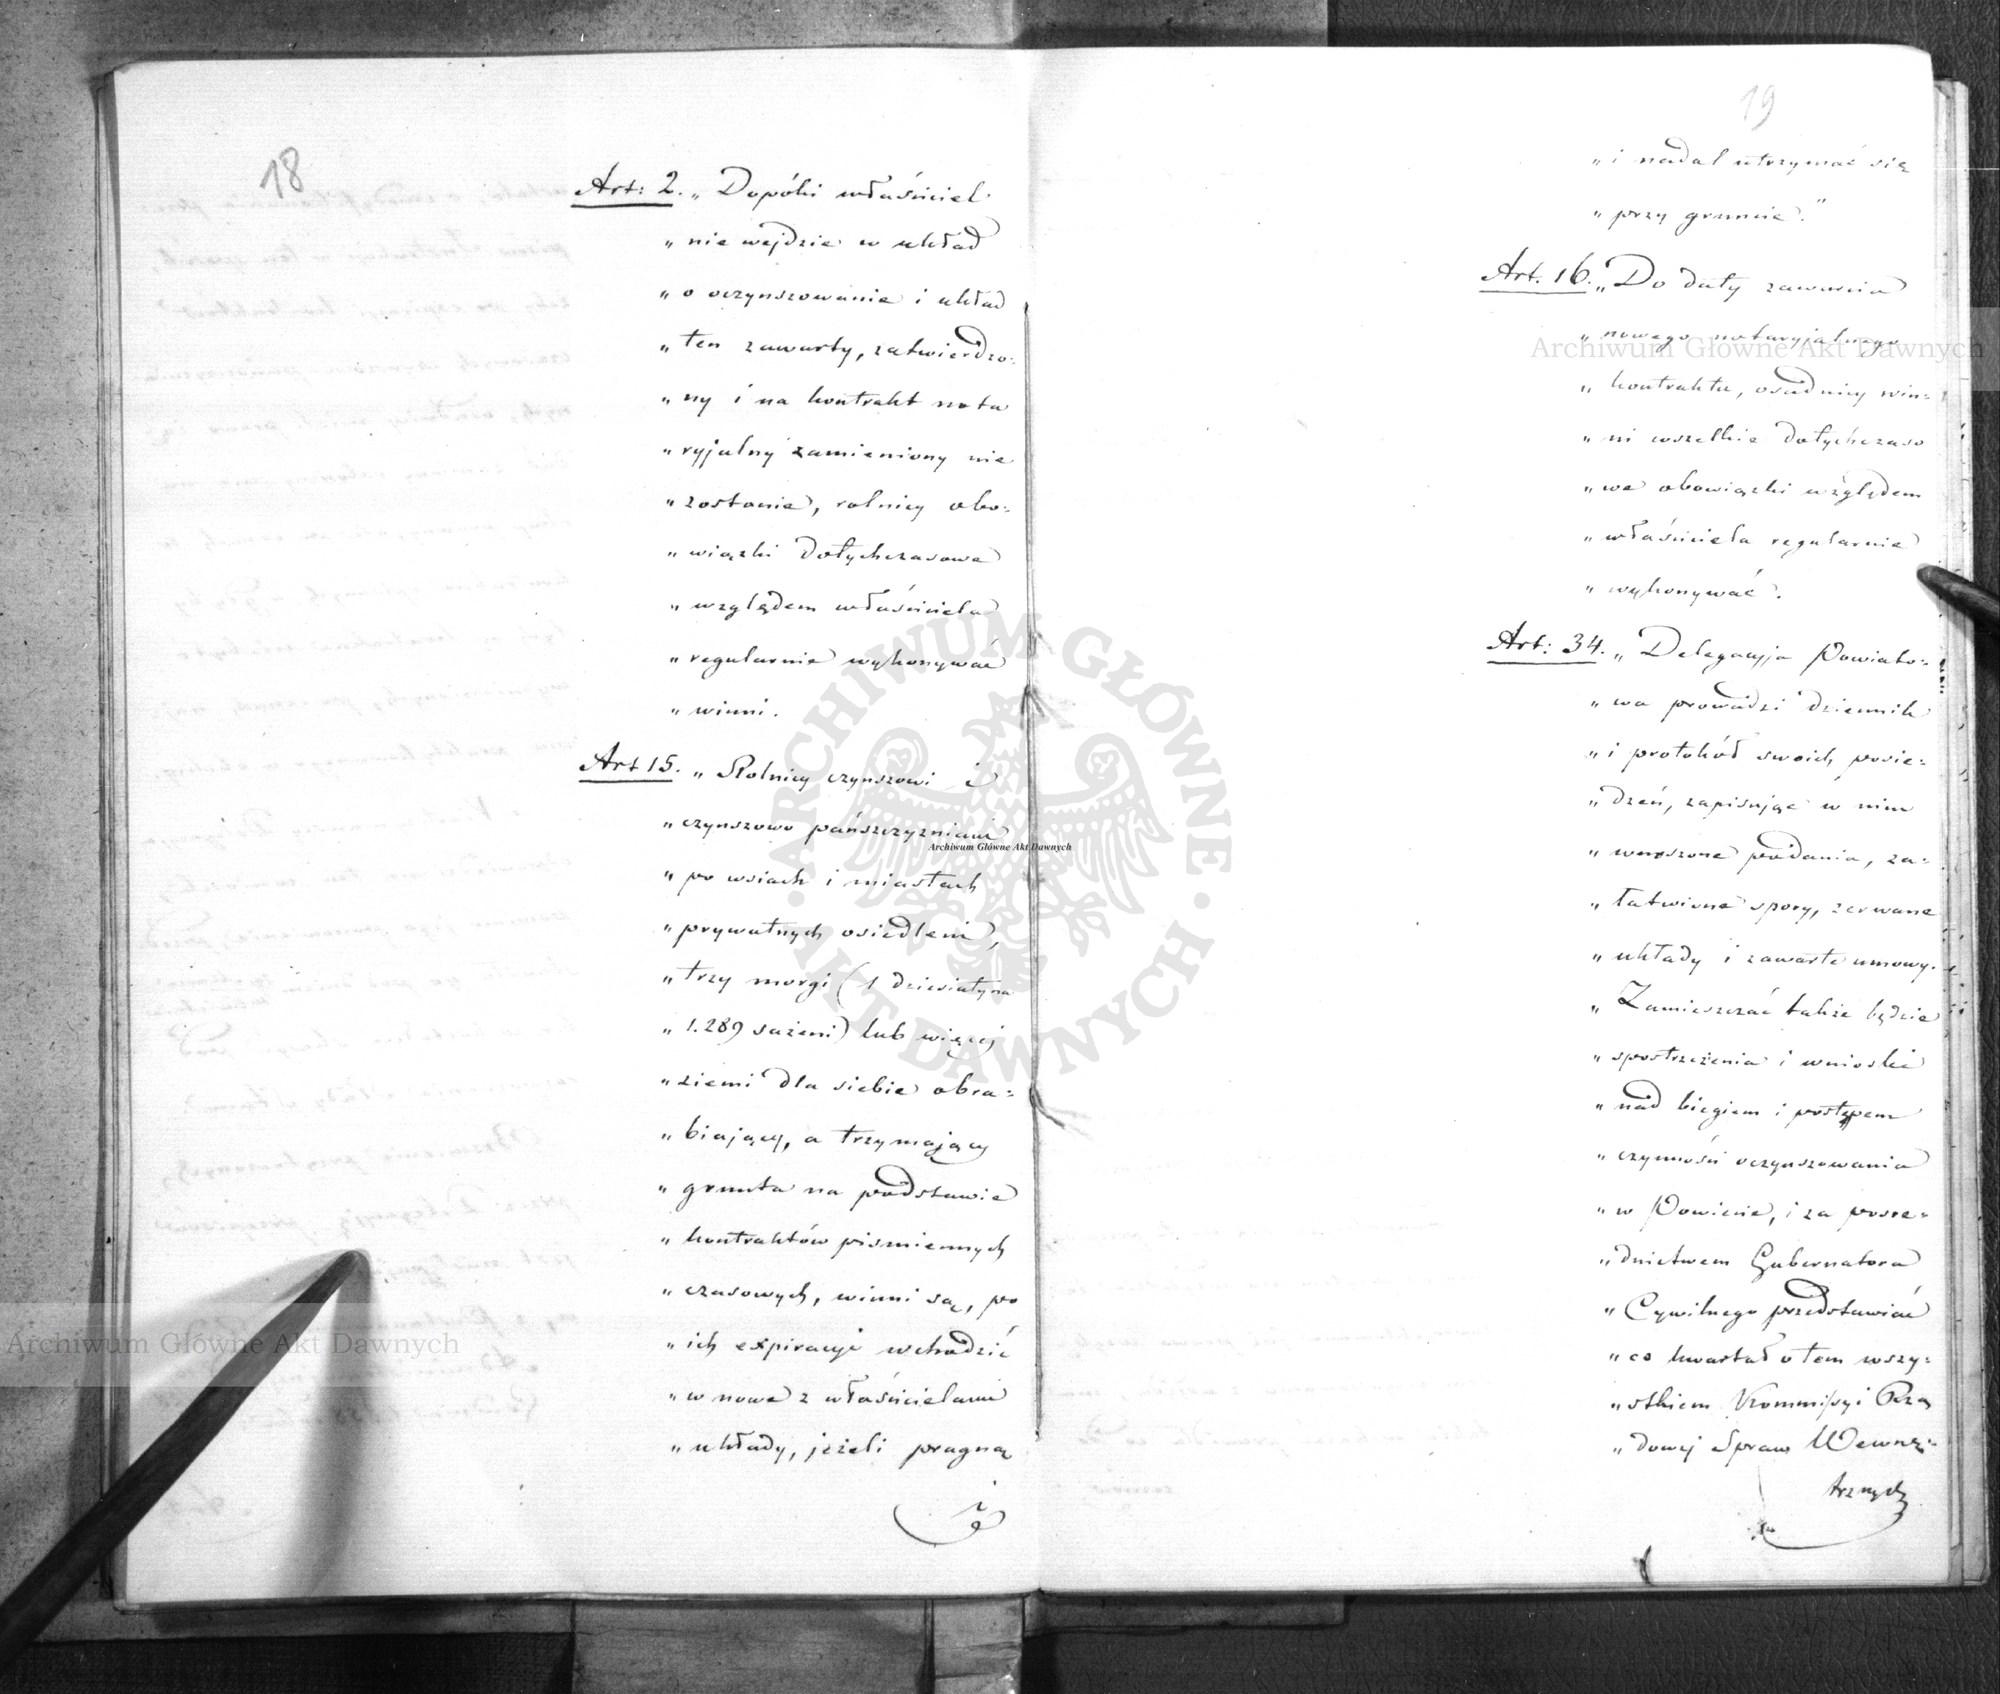 18
Art: 2. „Dopóki właściciel
„nie wejdzie w układ
„o oczynszowanie i układ
„ten zawarty, zatwierdzo=
„ny i na kontrakt nota
„ryjalny zamieniony nie
„zostanie, rolnicy obo=
„wiązki dotychczasowe
„względem właściciela
„regularnie wykonywać
„winni.
Art 15. „Rolnicy czynszowi i
„czynszowo pańszczyzniani
„po wsiach i miastach
„prywatnych osiedleni,
„trzy morgi (1 dziesiatyna
„1.289 sażeni) lub więcej
„ziemi dla siebie obra=
„biający, a trzymający
„grunta na podstawie
„kontraktów piśmiennych
„czasowych, winni są, po
„ich expiracyi wchodzić
„w nowe z właścicielami
„układy, jeżeli pragną
i
19
„i nadal utrzymać się
„przy gruncie."
Art. 16. „Do daty zawarcia
„nowego notaryjalnego
„kontraktu, osadnicy win=
„ni wszelkie dotychczaso
„we obowiązki względem
„właściciela regularnie
„wykonywać.
Art: 34. „Delegacyja Powiato=
„wa prowadzi dziennik
„i protokół swoich posie=
„dzeń, zapisując w nim
„wnoszone podania, za=
„łatwione spory, zerwane
„układy i zawarte umowy.
„Zamieszczać także będzie
„spostrzeżenia i wnioski
„nad biegiem i postępem
„czynności oczynszowania
„w Powiecie, i za pośre=
„dnictwem Gubernatora
„Cywilnego przedstawiać
„co kwartał o tem wszy=
„stkiem Kommissyi Rzą
„dowej Spraw Wewnę=
trznych
Archiwum Główne Akt Dawnych
Archiwum Główne Akt Dawnych
Archiwum Główne Akt Dawnych
ARCHIWUM GŁÓWNE · AKT DAWNYCH ·